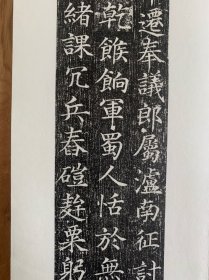 遷奉議郎屬瀘南征討
乾餱餉軍蜀人恬於無
緒課冗兵舂磑趍粟躬